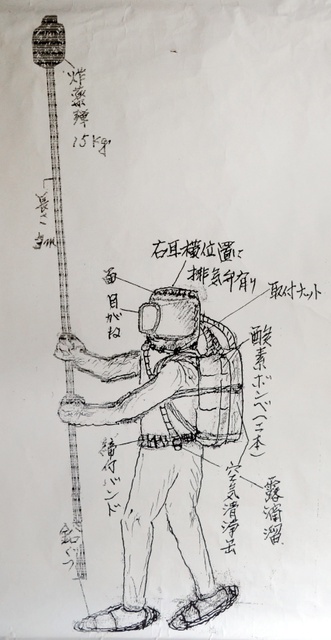 炸薬弾
15kg
長さ
5m
右耳横位置に
排気弁有り
面
目がね
取付ナット
酸素ボンベ(二本)
締付バンド
空気清浄缶
露滴溜
鉛ぐつ